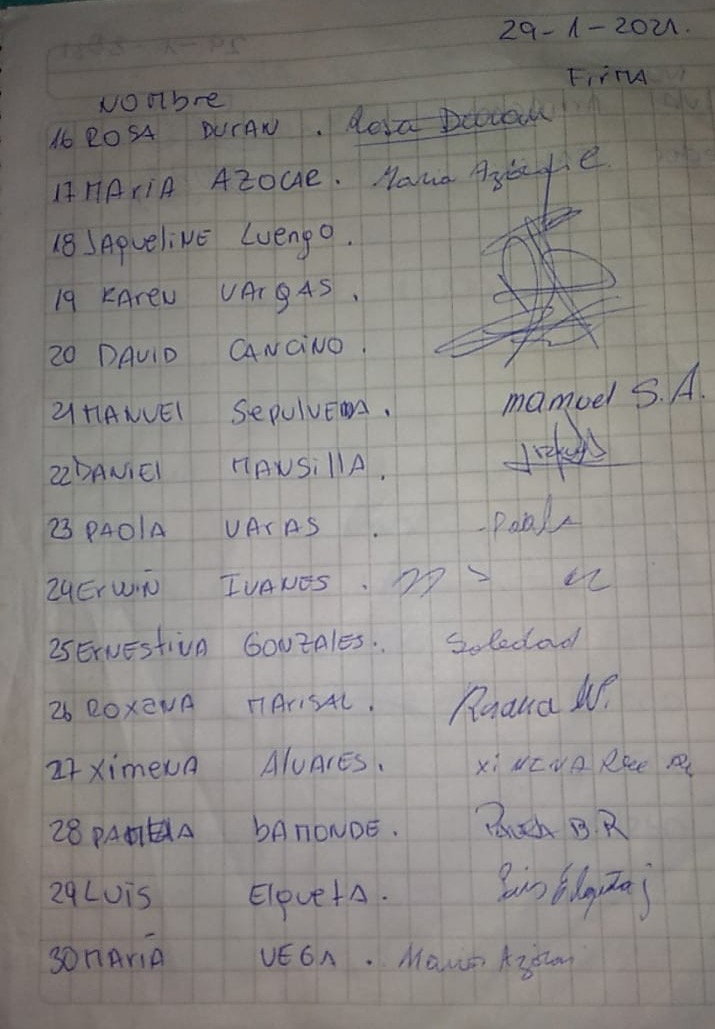 29-1-2021.
Nombre Firma
16 ROSA DURAN . Rosa Duran
17 MAriA AZOCAR . Maria Azócar C.
18 JAqueliNE LueNgO .
19 KAreN VArgAS .
20 DAVID CANCiNO .
21 MANUEl SepulVEDA . manuel S.A.
22 DANIEl MANSillA .
23 PAOlA VArAS . Paola
24 ErwiN IVANES .
25 ErNEStiNA GONZAlES . Soledad
26 ROXENA MAriSAL .
27 XimeNA AlVArES . XiMENA
28 PAMElA bAMONDE . B.R
29 LUiS ElquetA . Luis
30 MAriA VEGA . Maria Azócar